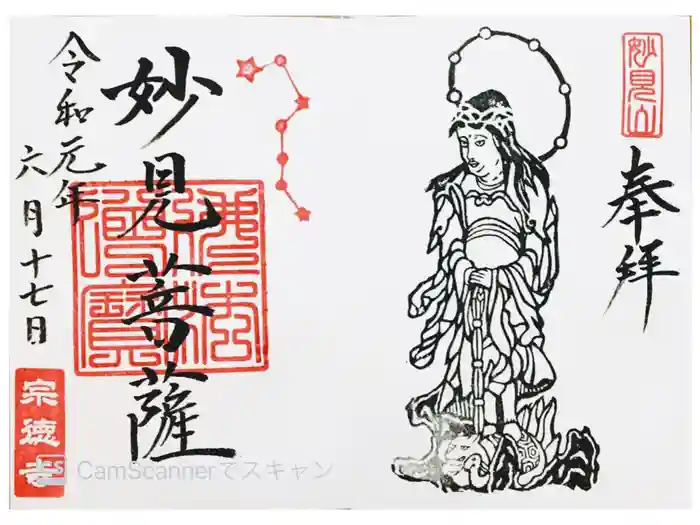 妙見山
奉拝
妙見菩薩
令和元年
六月十七日
佛法僧寶
宗徳寺
CS CamScannerでスキャン